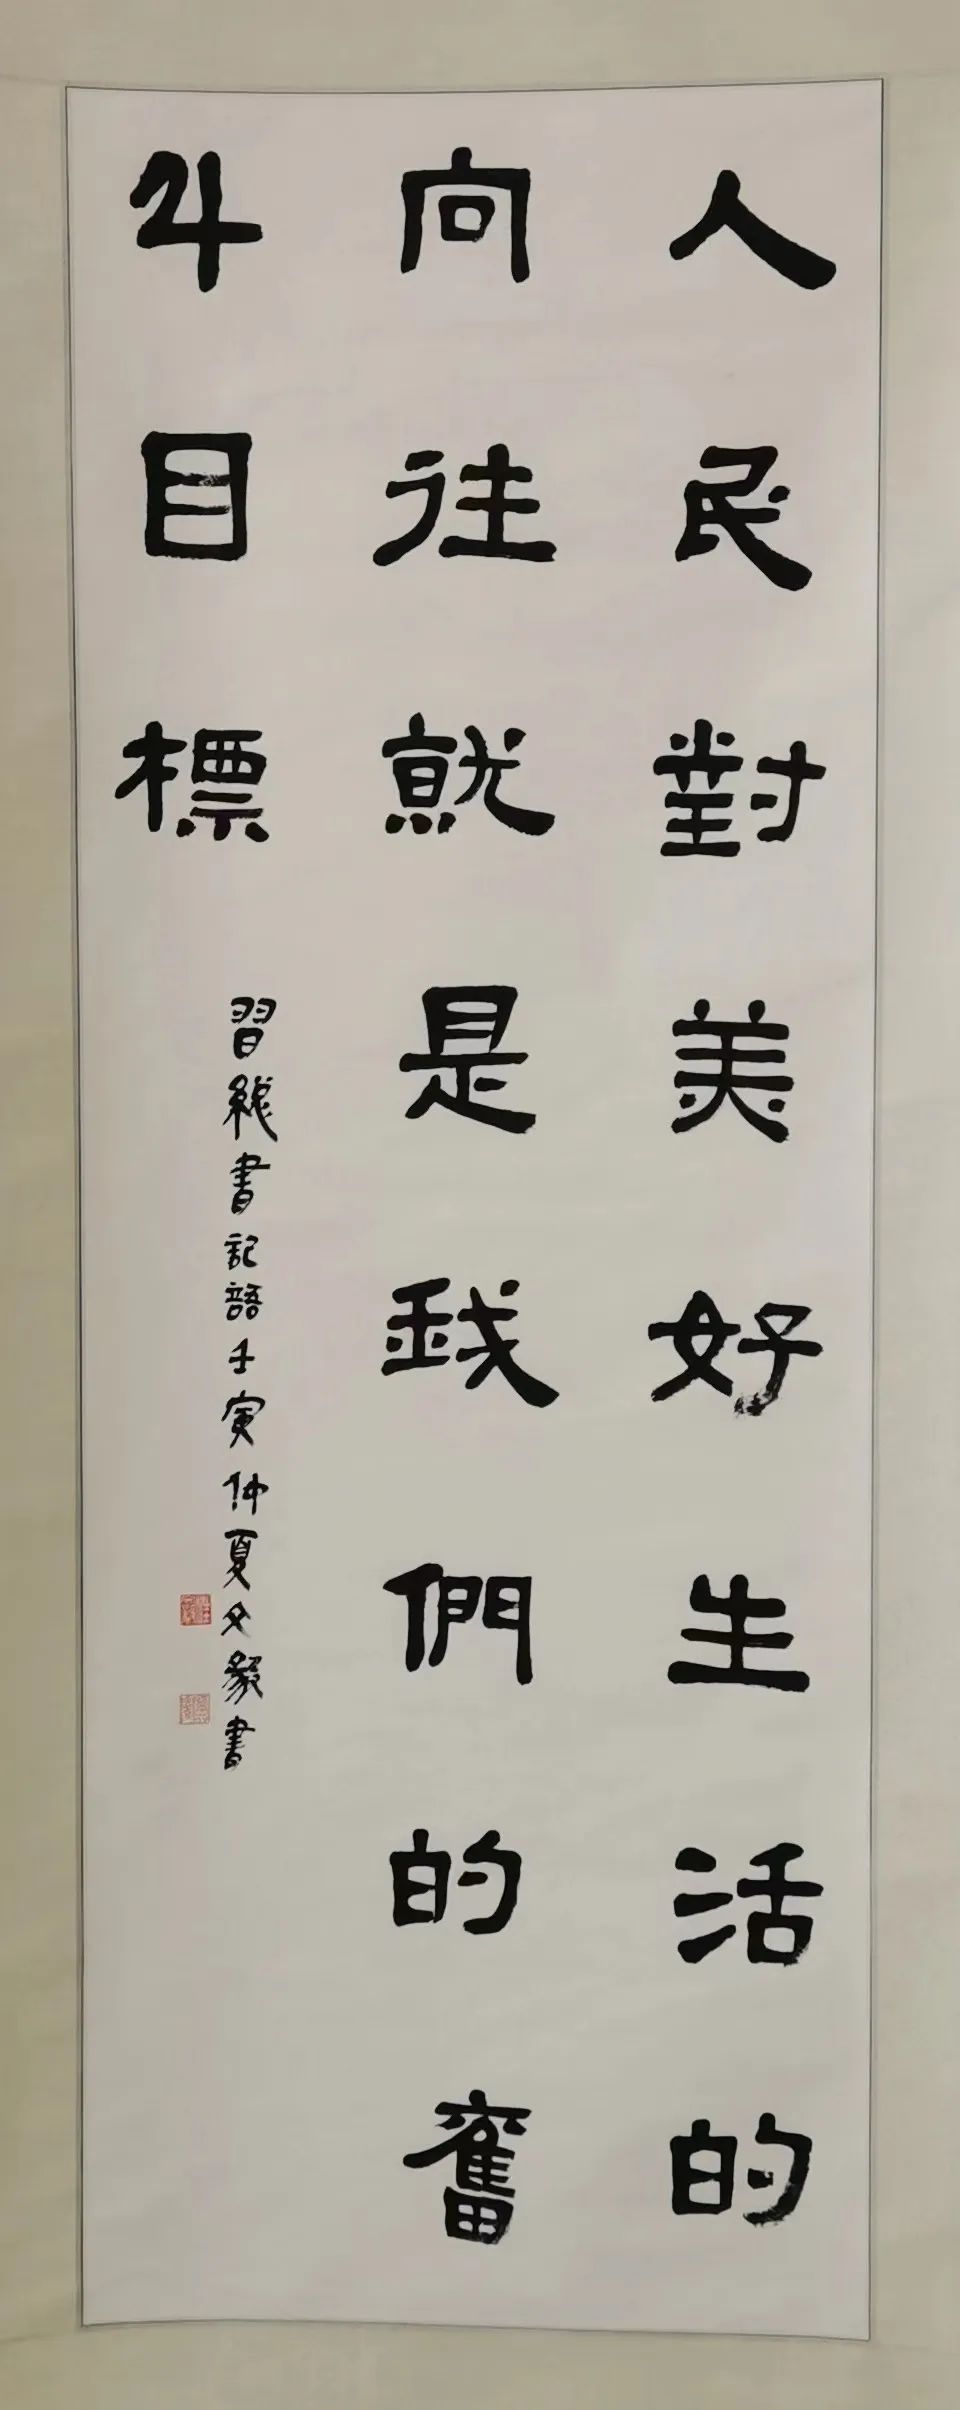 人民對美好生活的
向往就是我們的奮
斗目標
習總書記語壬寅仲夏文毅書